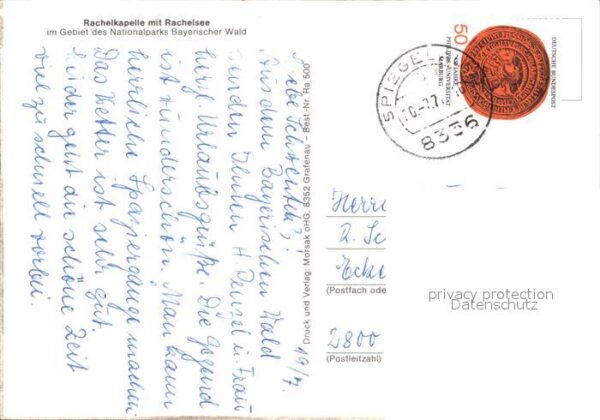 Rachelkapelle mit Rachelsee
im Gebiet des Nationalparks Bayerischer Wald
19/7.
Liebe
Aus dem Bayerischen Wald
senden Ihnen H. u. Frau
herzl. Urlaubsgrüße. Die Gegend
ist wunderschön. Man kann
herrliche Spaziergänge machen
Das Wetter ist sehr gut.
Leider geht die schöne Zeit
viel zu schnell vorbei.
Druck und Verlag: Morsak oHG, 8352 Grafenau – Best.-Nr. Ra 500
50
DEUTSCHE BUNDESPOST
PHILIPPS-UNIVERSITÄT
MARBURG
SPIEGEL
8356
Herrn
(Postfach ode
2800
(Postleitzahl)
privacy protection
Datenschutz